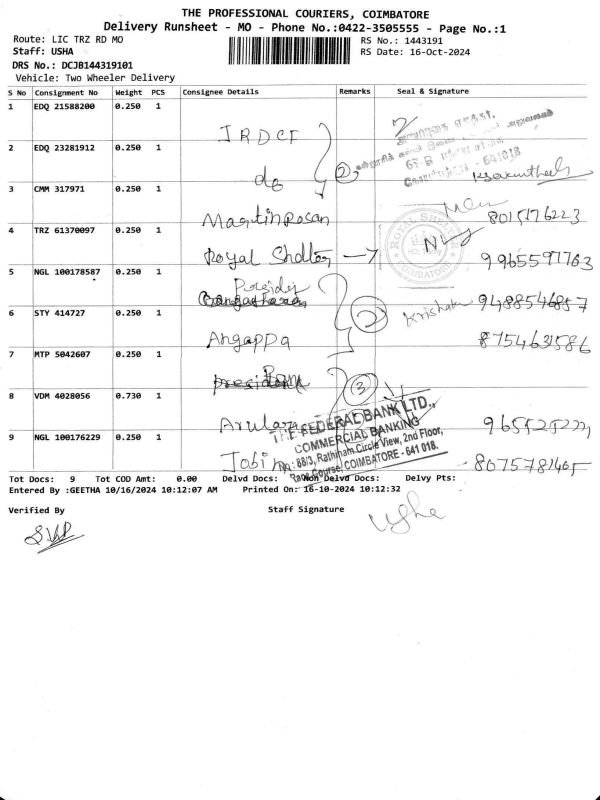 THE PROFESSIONAL COURIERS, COIMBATORE
Delivery Runsheet - MO - Phone No.:0422-3505555 - Page No.:1
Route: LIC TRZ RD MO
RS No.: 1443191
Staff: USHA
RS Date: 16-Oct-2024
DRS No.: DCJB144319101
Vehicle: Two Wheeler Delivery
S No Consignment No Weight PCS Consignee Details Remarks Seal & Signature
1 EDQ 21588200 0.250 1
IRDCF
2 EDQ 23281912 0.250 1
do 2
63-B
641018
3 CMM 317971 0.250 1
Martin Rosan 8015176223
4 TRZ 61370097 0.250 1
Royal Shelter 9965597763
ROYAL SHELTER
COIMBATORE
5 NGL 100178587 0.250 1
Krishak 9488546857
6 STY 414727 0.250 1
Angappa 2 8754631586
7 MTP 5042607 0.250 1
3
8 VDM 4028056 0.730 1
THE FEDERAL BANK LTD.,
COMMERCIAL BANKING
No: 88/3, Rathinam Circle View, 2nd Floor,
Race Course, COIMBATORE - 641 018.
9 NGL 100176229 0.250 1
Jobi 8075781465
Tot Docs: 9 Tot COD Amt: 0.00 Delvd Docs: Non Delvd Docs: Delvy Pts:
Entered By :GEETHA 10/16/2024 10:12:07 AM Printed On: 16-10-2024 10:12:32
Verified By Staff Signature
Usha